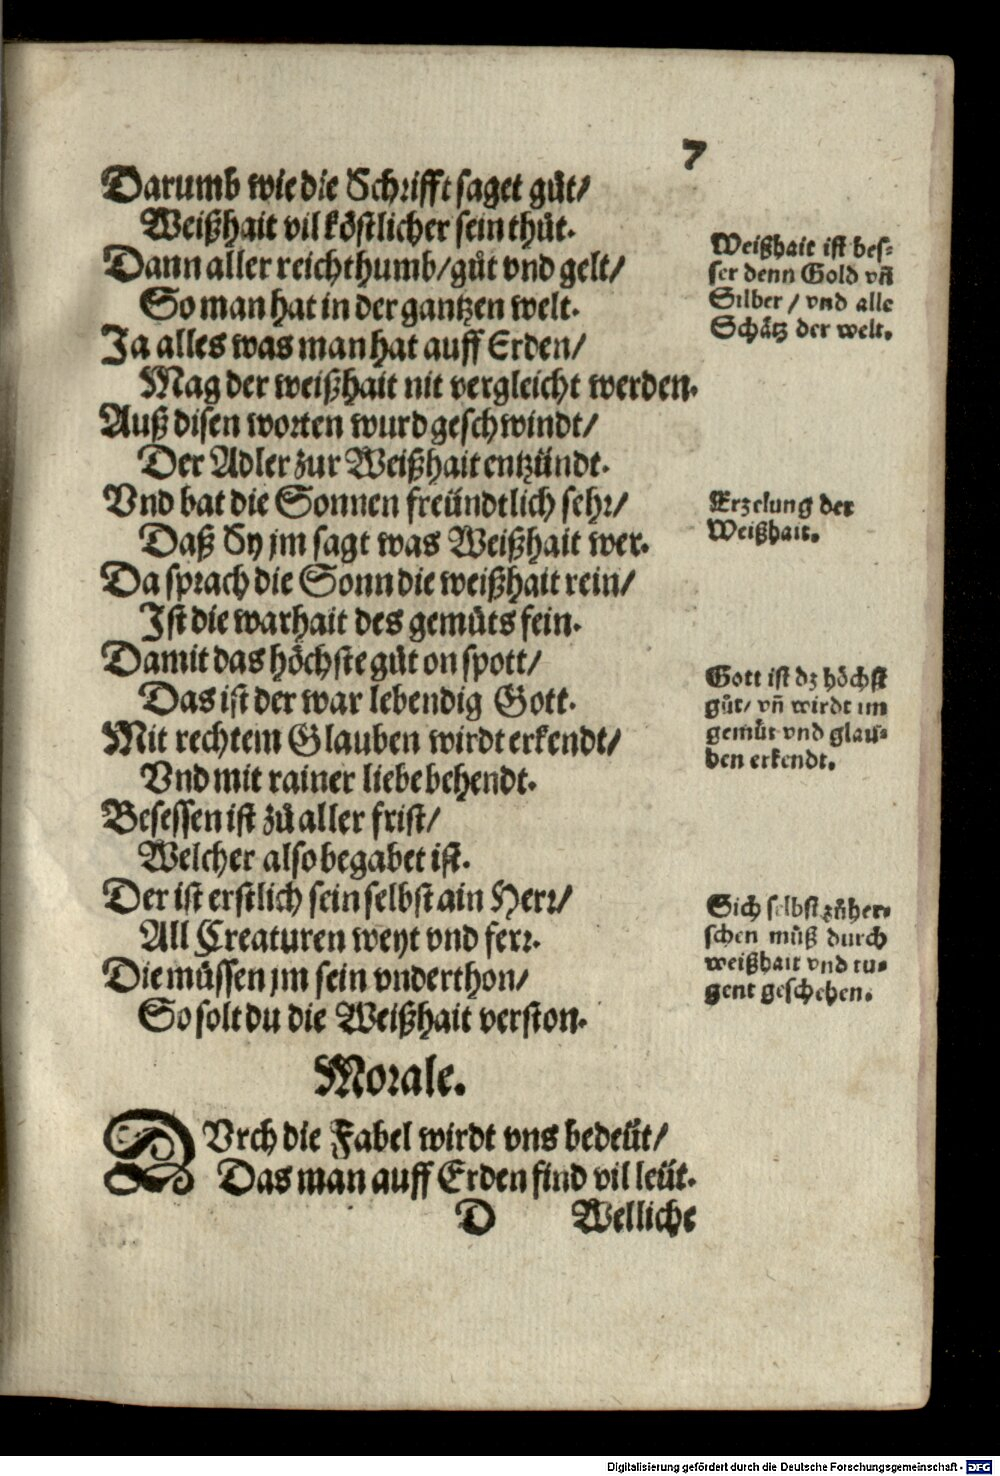 7
Darumb wie die Schrifft saget gůt/
Weißhait vil köstlicher sein thůt.
Dann aller reichthumb/gůt vnd gelt/
So man hat in der gantzen welt.
Ja alles was man hat auff Erden/
Mag der weißhait nit vergleicht werden.
Auß disen worten wurd geschwindt/
Der Adler zur Weißhait entzündt.
Vnd bat die Sonnen freündtlich sehr/
Daß Sy jm sagt was Weißhait wer.
Da sprach die Sonn die weißhait rein/
Ist die warhait des gemůts fein.
Damit das höchste gůt on spott/
Das ist der war lebendig Gott.
Mit rechtem Glauben wirdt erkendt/
Vnd mit rainer liebe behendt.
Besessen ist zů aller frist/
Welcher also begabet ist.
Der ist erstlich sein selbst ain Herr/
All Creaturen weyt vnd ferr.
Die müssen jm sein vnderthon/
So solt du die Weißhait verston.
Weißhait ist bes-
ser denn Gold vñ
Silber / vnd alle
Schätz der welt.
Erzelung der
Weißhait.
Gott ist dz höchst
gůt/ vñ wirdt im
gemůt vnd glau-
ben erkendt.
Sich selbst zůher-
schen můß durch
weißhait vnd tu-
gent geschehen.
Morale.
DVrch die Fabel wirdt vns bedeüt/
Das man auff Erden find vil leüt.
D Welliche
Digitalisierung gefördert durch die Deutsche Forschungsgemeinschaft - DFG